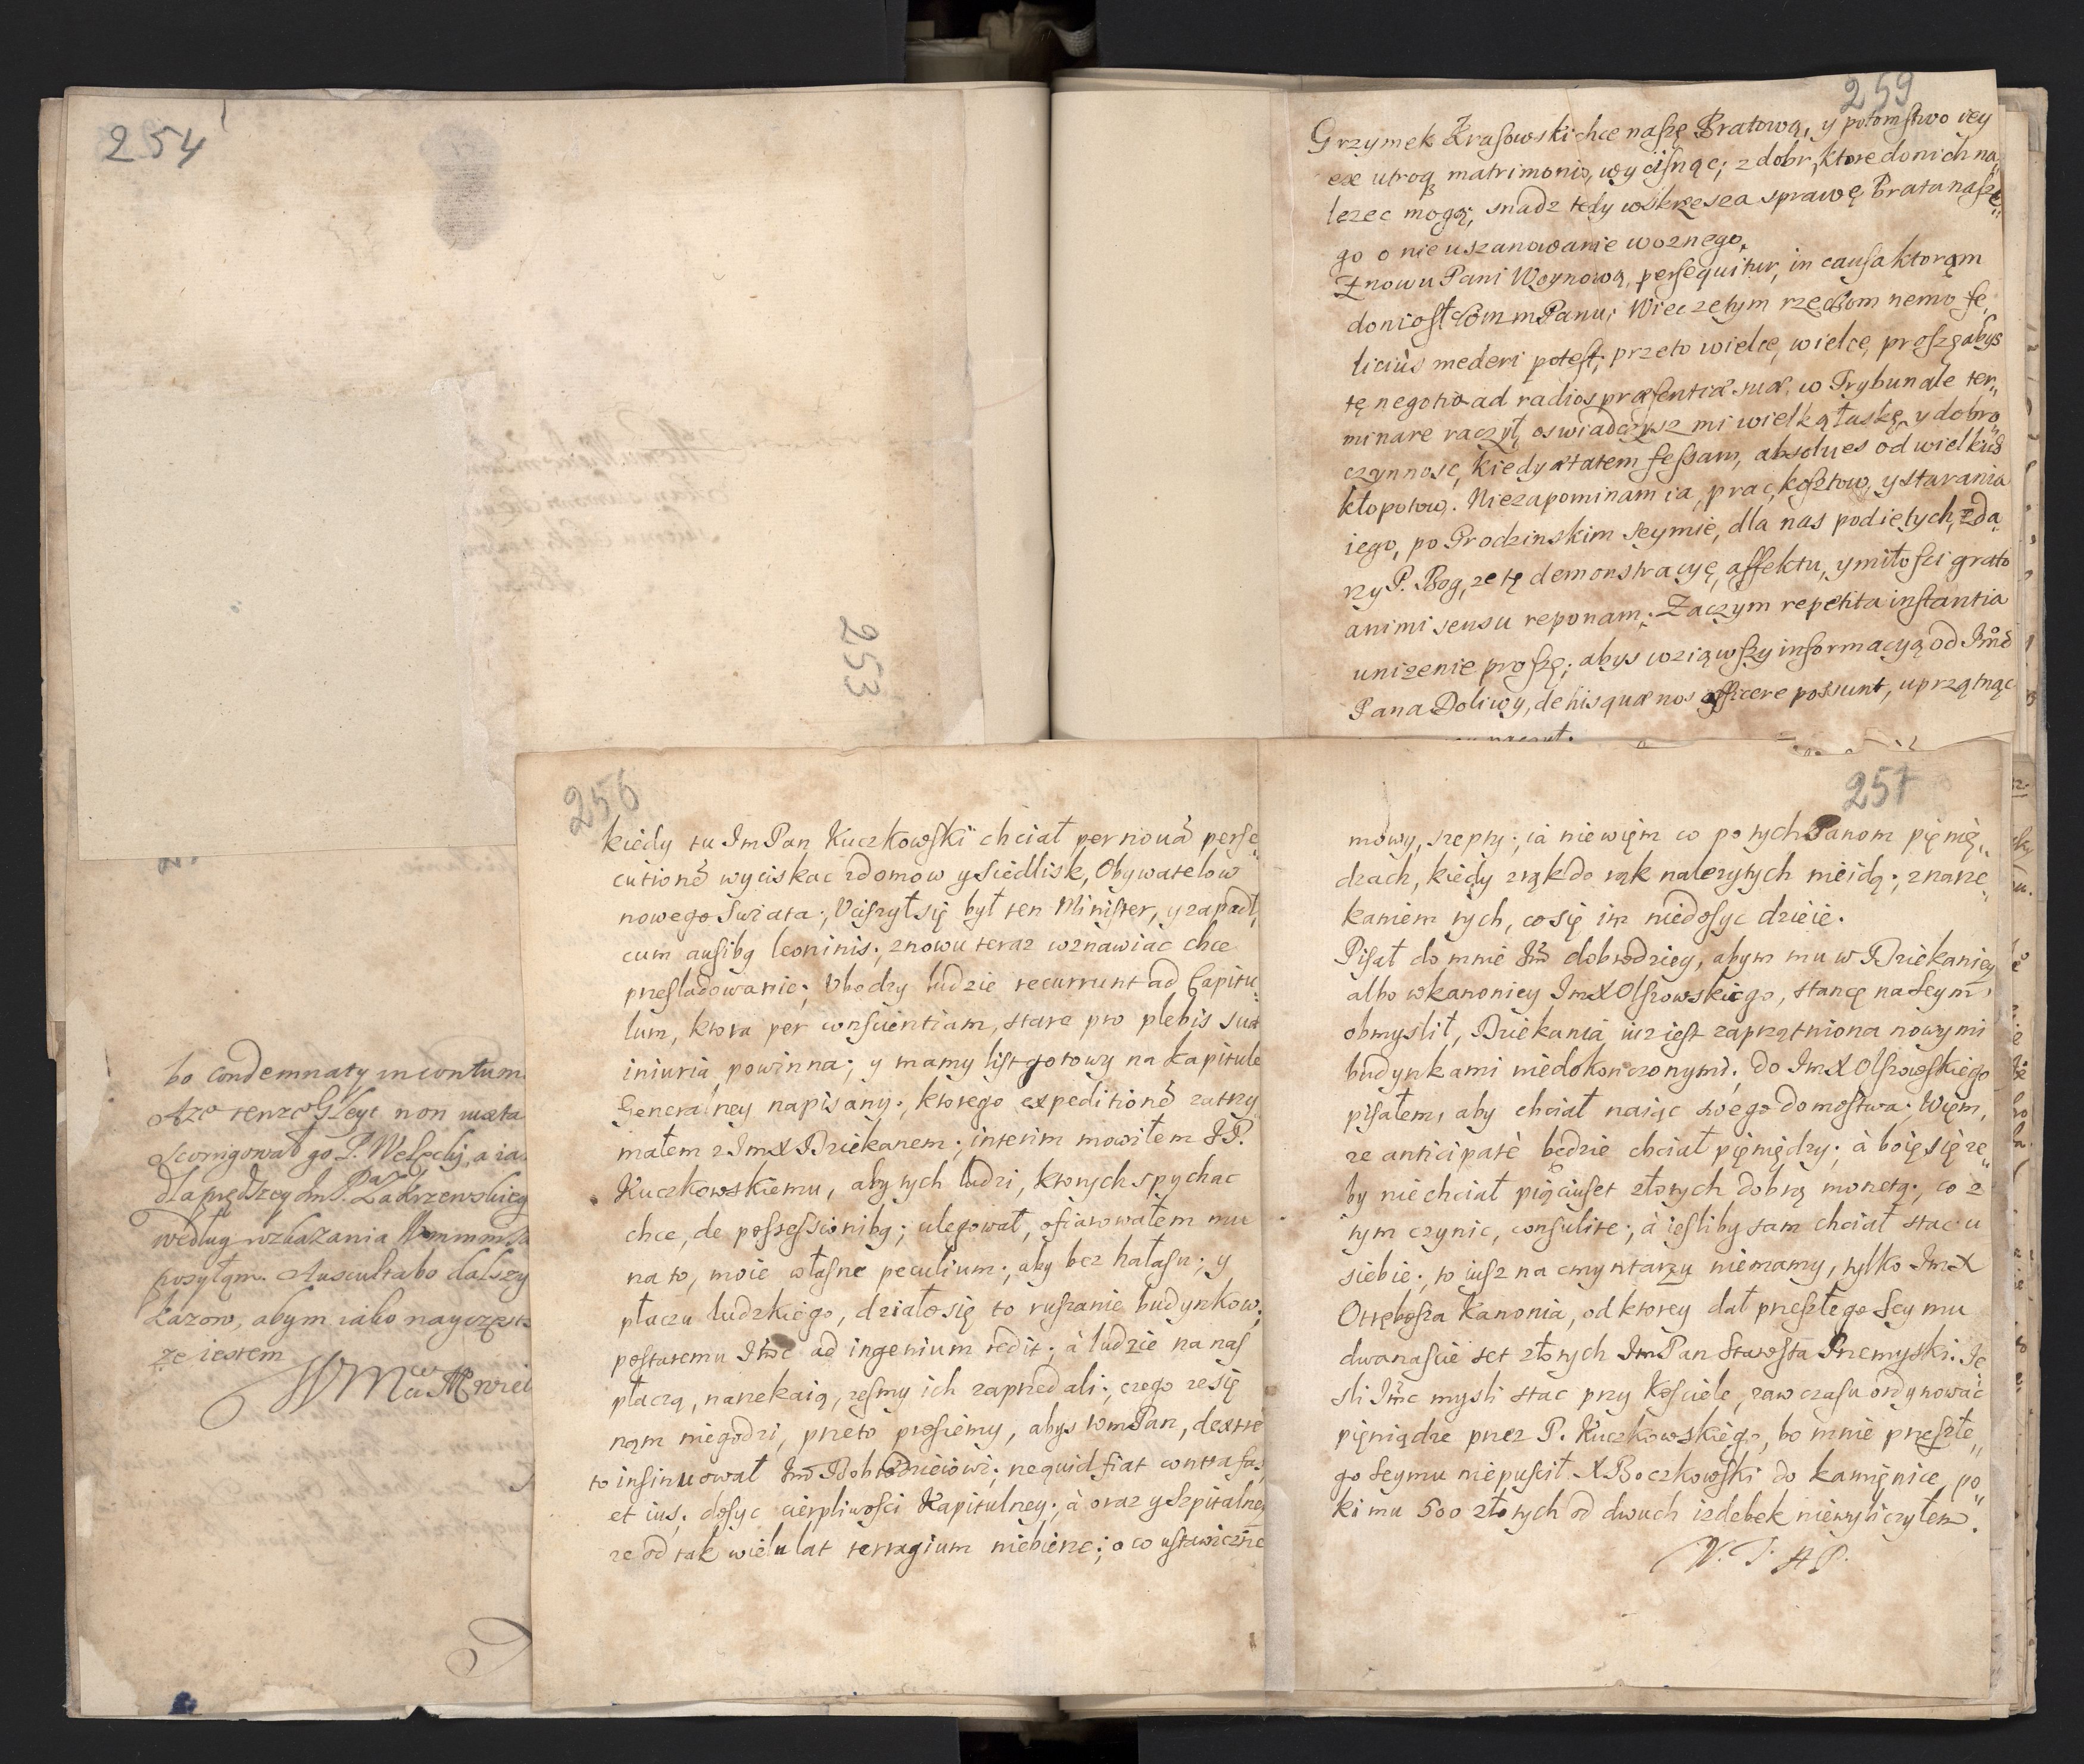 254
253
bo condemnaty in contum
według wskazania
posyłam. Auscultabo dalszy
kazow, abym iako nayczęst
że iestem
259
Grzymek Krasowski chce naszę Bratową, y potomstwo iey
ex utroq matrimonio, wycisnąc; z dobr, ktore do nich na„
lezec mogą, snadz tedy wskrzesea sprawę Brata nasze„
go o nieuszanowanie woznego.
Znowu Pani Woynowa, persequitur, in causa ktorąm
doniosł Wmm Panu; Wiec ze tym rzeczom nemo fe„
licius mederi potest; przeto wielce, wielce, proszę abys
tę negotia ad radios præsentiæ suæ, w Trybunale ter„
minare raczył, oswiadczysz mi wielką łaskę, y dobro„
czynnosc, kiedy ætatem fessam, absolves od wielkich
kłopotow. Niezapominam ia, prac, kosztow, y starania
iego, po Grodzinskim seymie, dla nas podietych, zda„
rzy P. Bog, ze tę demonstracyę, affektu, y miłosci grato
animi sensu reponam. Zaczym repetita instantia
unizenie proszę; abys wziąwszy informacyą od Imc
Pana Doliwy, de his quæ nos afficere possunt, uprzątnąc
raczył.
256
kiedy tu Im Pan Kuczkowski chciał per nouã perse„
cutionẽ wyciskac z domow y siedlisk, Obywatelow
nowego swiata; Uciszył się był ten Minister, y zapadł,
cum ausibq leoninis; znowu teraz wznawiac chce
przesladowanie; Ubodzy ludzie recurrunt ad Capitu„
lum, ktora per conscientiam, stare pro plebis suæ
iniuria powinna; y mamy list gotowy na kapitule
Generalney napisany; ktorego expeditionẽ zatrzy
małem z ImX Dziekanem; interim mowiłem J P.
Kuczkowskiemu, aby tych ludzi, ktorych spychac
chce, de possessionibq; ulegował, ofiarowałem mu
na to, moie własne peculium; aby bez hałasu; y
płaczu ludzkiego, działo się to ruszanie budynkow;
postaremu Imc ad ingenium redit; à ludzie na nas
płaczą, narzekaią, zesmy ich zaprzedali; czego ze się
nąm niegodzi, przeto prosiemy, abys wmPan, dextrè
to insinuował Imc Dobrodzieiowi; ne quid fiat contra fas,
et ius; dosyc cierpliwosci Kapitulney; à oraz y Szpitalney
ze od tak wielu lat terragium niebierze; o co ustawiczne
257
mowy, szepty; ia niewięm co po tych Panom pięnię„
dzach, kiedy z rąk do rąk nalezytych nieidą; z narze„
kaniem tych, co się im niedosyc dzieie.
Pisał do mnie Im̃ dobrodziey, abym mu w Dziekaniey
albo w kanoniey ImX Olszowskiego, stancę na Seym
obmyslił, Dziekania iuz iest zaprzątniona nowymi
budynkami niedokonczonymi; do ImX Olszowskiego
pisałem, aby chciał naiąc swego domostwa; Więm,
ze anticipatè będzie chciał pięniędzy; à boię się ze„
by niechciał pięciuset złotych dobrą monetą; co z
tym czynic, consulite; à iesliby sam chciał stac u
siebie; to iusz na cmyntarzu niemamy, tylko ImX
Otrębosza Kanonia, od ktorey dał przeszłego Seymu
dwanascie set złotych Im Pan Starosta Przemyski. Je
sli Imc mysli stac przy Kosciele, zawczasu ordynowac
pięniądze przez P. Kuczkowskiego, bo mnie przeszłe„
go Seymu niepuscił X Boczkowski do kamięnice, po„
ki mu 500 złotych od dwuch izdebek niewyliczyłem.
V. T. A P.